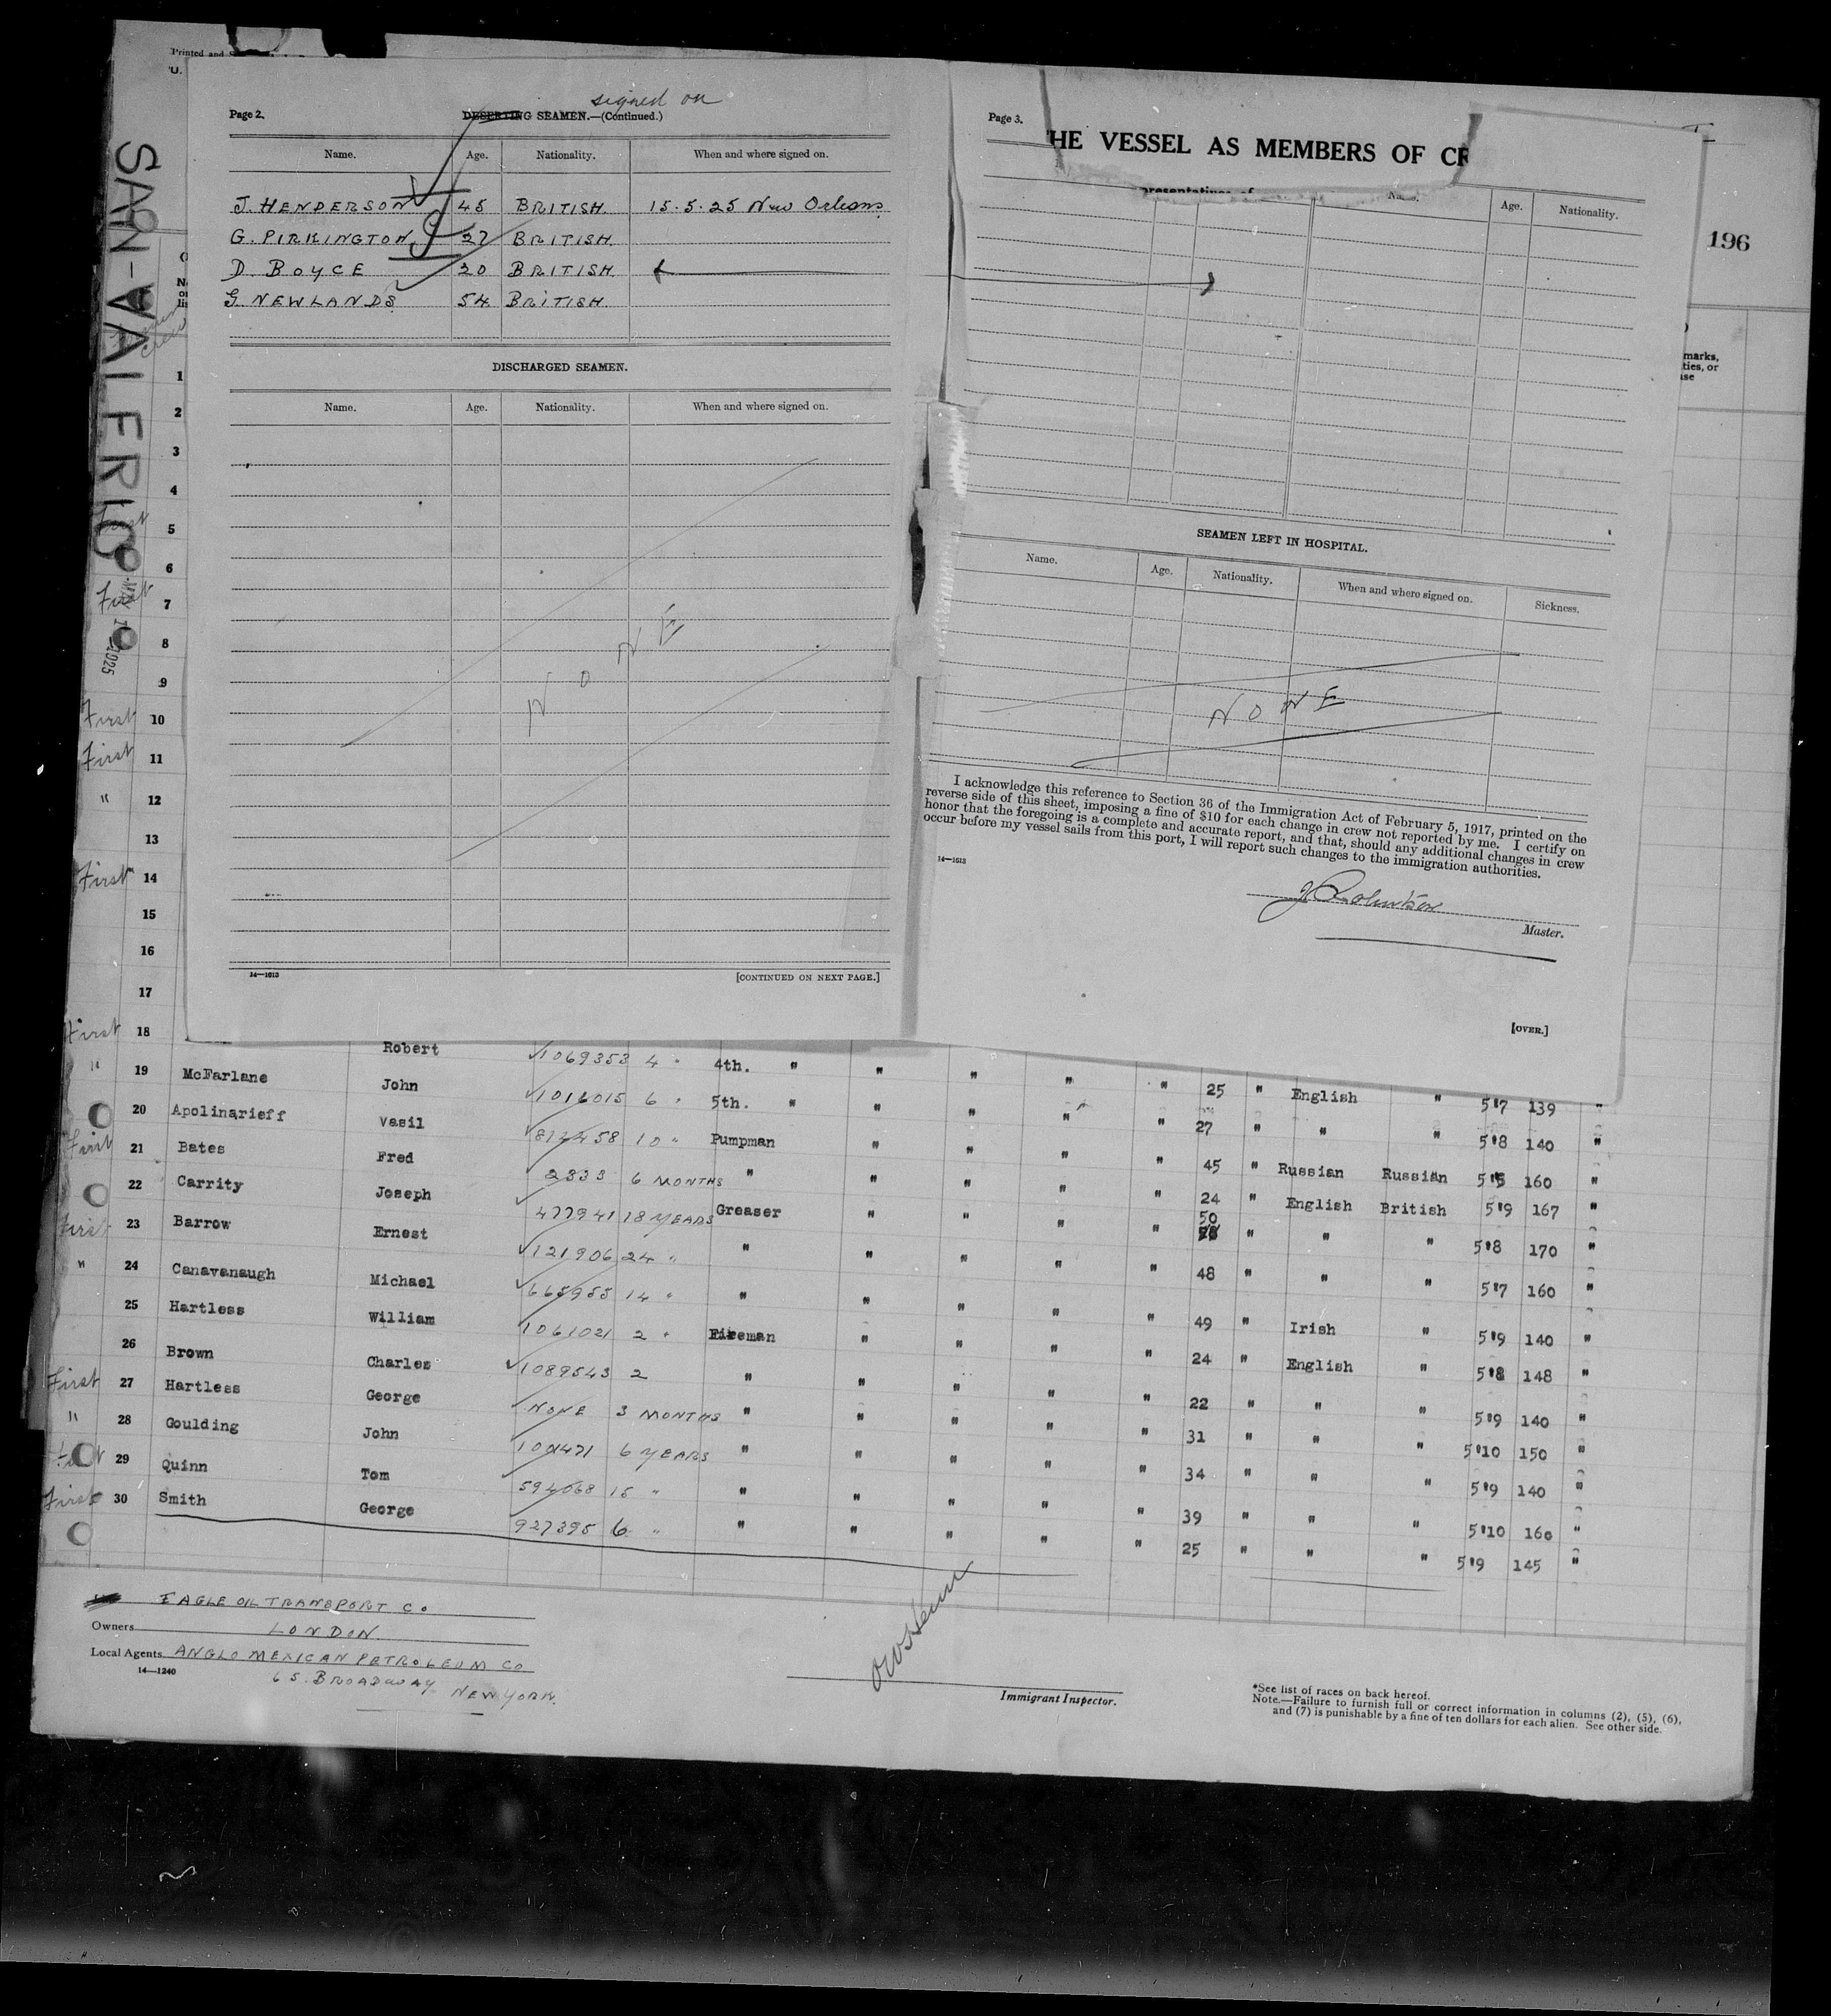 Printed and
U.
SAN-VALFRIO
1925
signed on
Page 2.
DESERTING SEAMEN.—(Continued.)
Name. Age. Nationality. When and where signed on.
J. HENDERSON 45 BRITISH. 15.5.25 New Orleans
G. PIRKINGTON, 27 BRITISH.
D. BOYCE 20 BRITISH.
G. NEWLANDS 54 BRITISH.
DISCHARGED SEAMEN.
Name. Age. Nationality. When and where signed on.
NONE
14—1613
[CONTINUED ON NEXT PAGE.]
Page 3.
HE VESSEL AS MEMBERS OF CR
presentatives of
Name. Age. Nationality.
196
marks,
ties, or
ase
SEAMEN LEFT IN HOSPITAL.
Name. Age. Nationality. When and where signed on. Sickness.
NONE
I acknowledge this reference to Section 36 of the Immigration Act of February 5, 1917, printed on the
reverse side of this sheet, imposing a fine of $10 for each change in crew not reported by me. I certify on
honor that the foregoing is a complete and accurate report, and that, should any additional changes in crew
occur before my vessel sails from this port, I will report such changes to the immigration authorities.
14—1613
Master.
[OVER.]
1
2
3
4
First 5
6
First 7
8
9
First 10
First 11
" 12
13
First 14
15
16
17
First 18 Robert 1069353 4 " 4th. " " " " " 25 " English " 5'7 139 "
" 19 McFarlane John 1016015 6 " 5th. " " " " " 27 " " " 5'8 140 "
20 Apolinarieff Vasil 812458 10 " Pumpman " " " " 45 " Russian Russian 5'5 160 "
First 21 Bates Fred 2333 6 MONTHS " " " " " 24 " English British 5'9 167 "
22 Carrity Joseph 477941 18 YEARS Greaser " " " " 50 " " " 5'8 170 "
First 23 Barrow Ernest 121906 24 " " " " " " 48 " " " 5'7 160 "
" 24 Canavanaugh Michael 665955 14 " " " " " " 49 " Irish " 5'9 140 "
25 Hartless William 1061021 2 " Fireman " " " " 24 " English " 5'8 148 "
26 Brown Charles 1089543 2 " " " " " 22 " " " 5'9 140 "
First 27 Hartless George NONE 3 MONTHS " " " " " 31 " " " 5'10 150 "
" 28 Goulding John 101471 6 YEARS " " " " " 34 " " " 5'9 140 "
First 29 Quinn Tom 594068 15 " " " " " " 39 " " " 5'10 160 "
First 30 Smith George 927395 6 " " " " " " 25 " " " 5'9 145 "
EAGLE OIL TRANSPORT CO
Owners LONDON.
Local Agents ANGLO MEXICAN PETROLEUM CO
14—1240
65. BROADWAY NEW YORK.
Immigrant Inspector.
*See list of races on back hereof.
Note.—Failure to furnish full or correct information in columns (2), (5), (6),
and (7) is punishable by a fine of ten dollars for each alien. See other side.